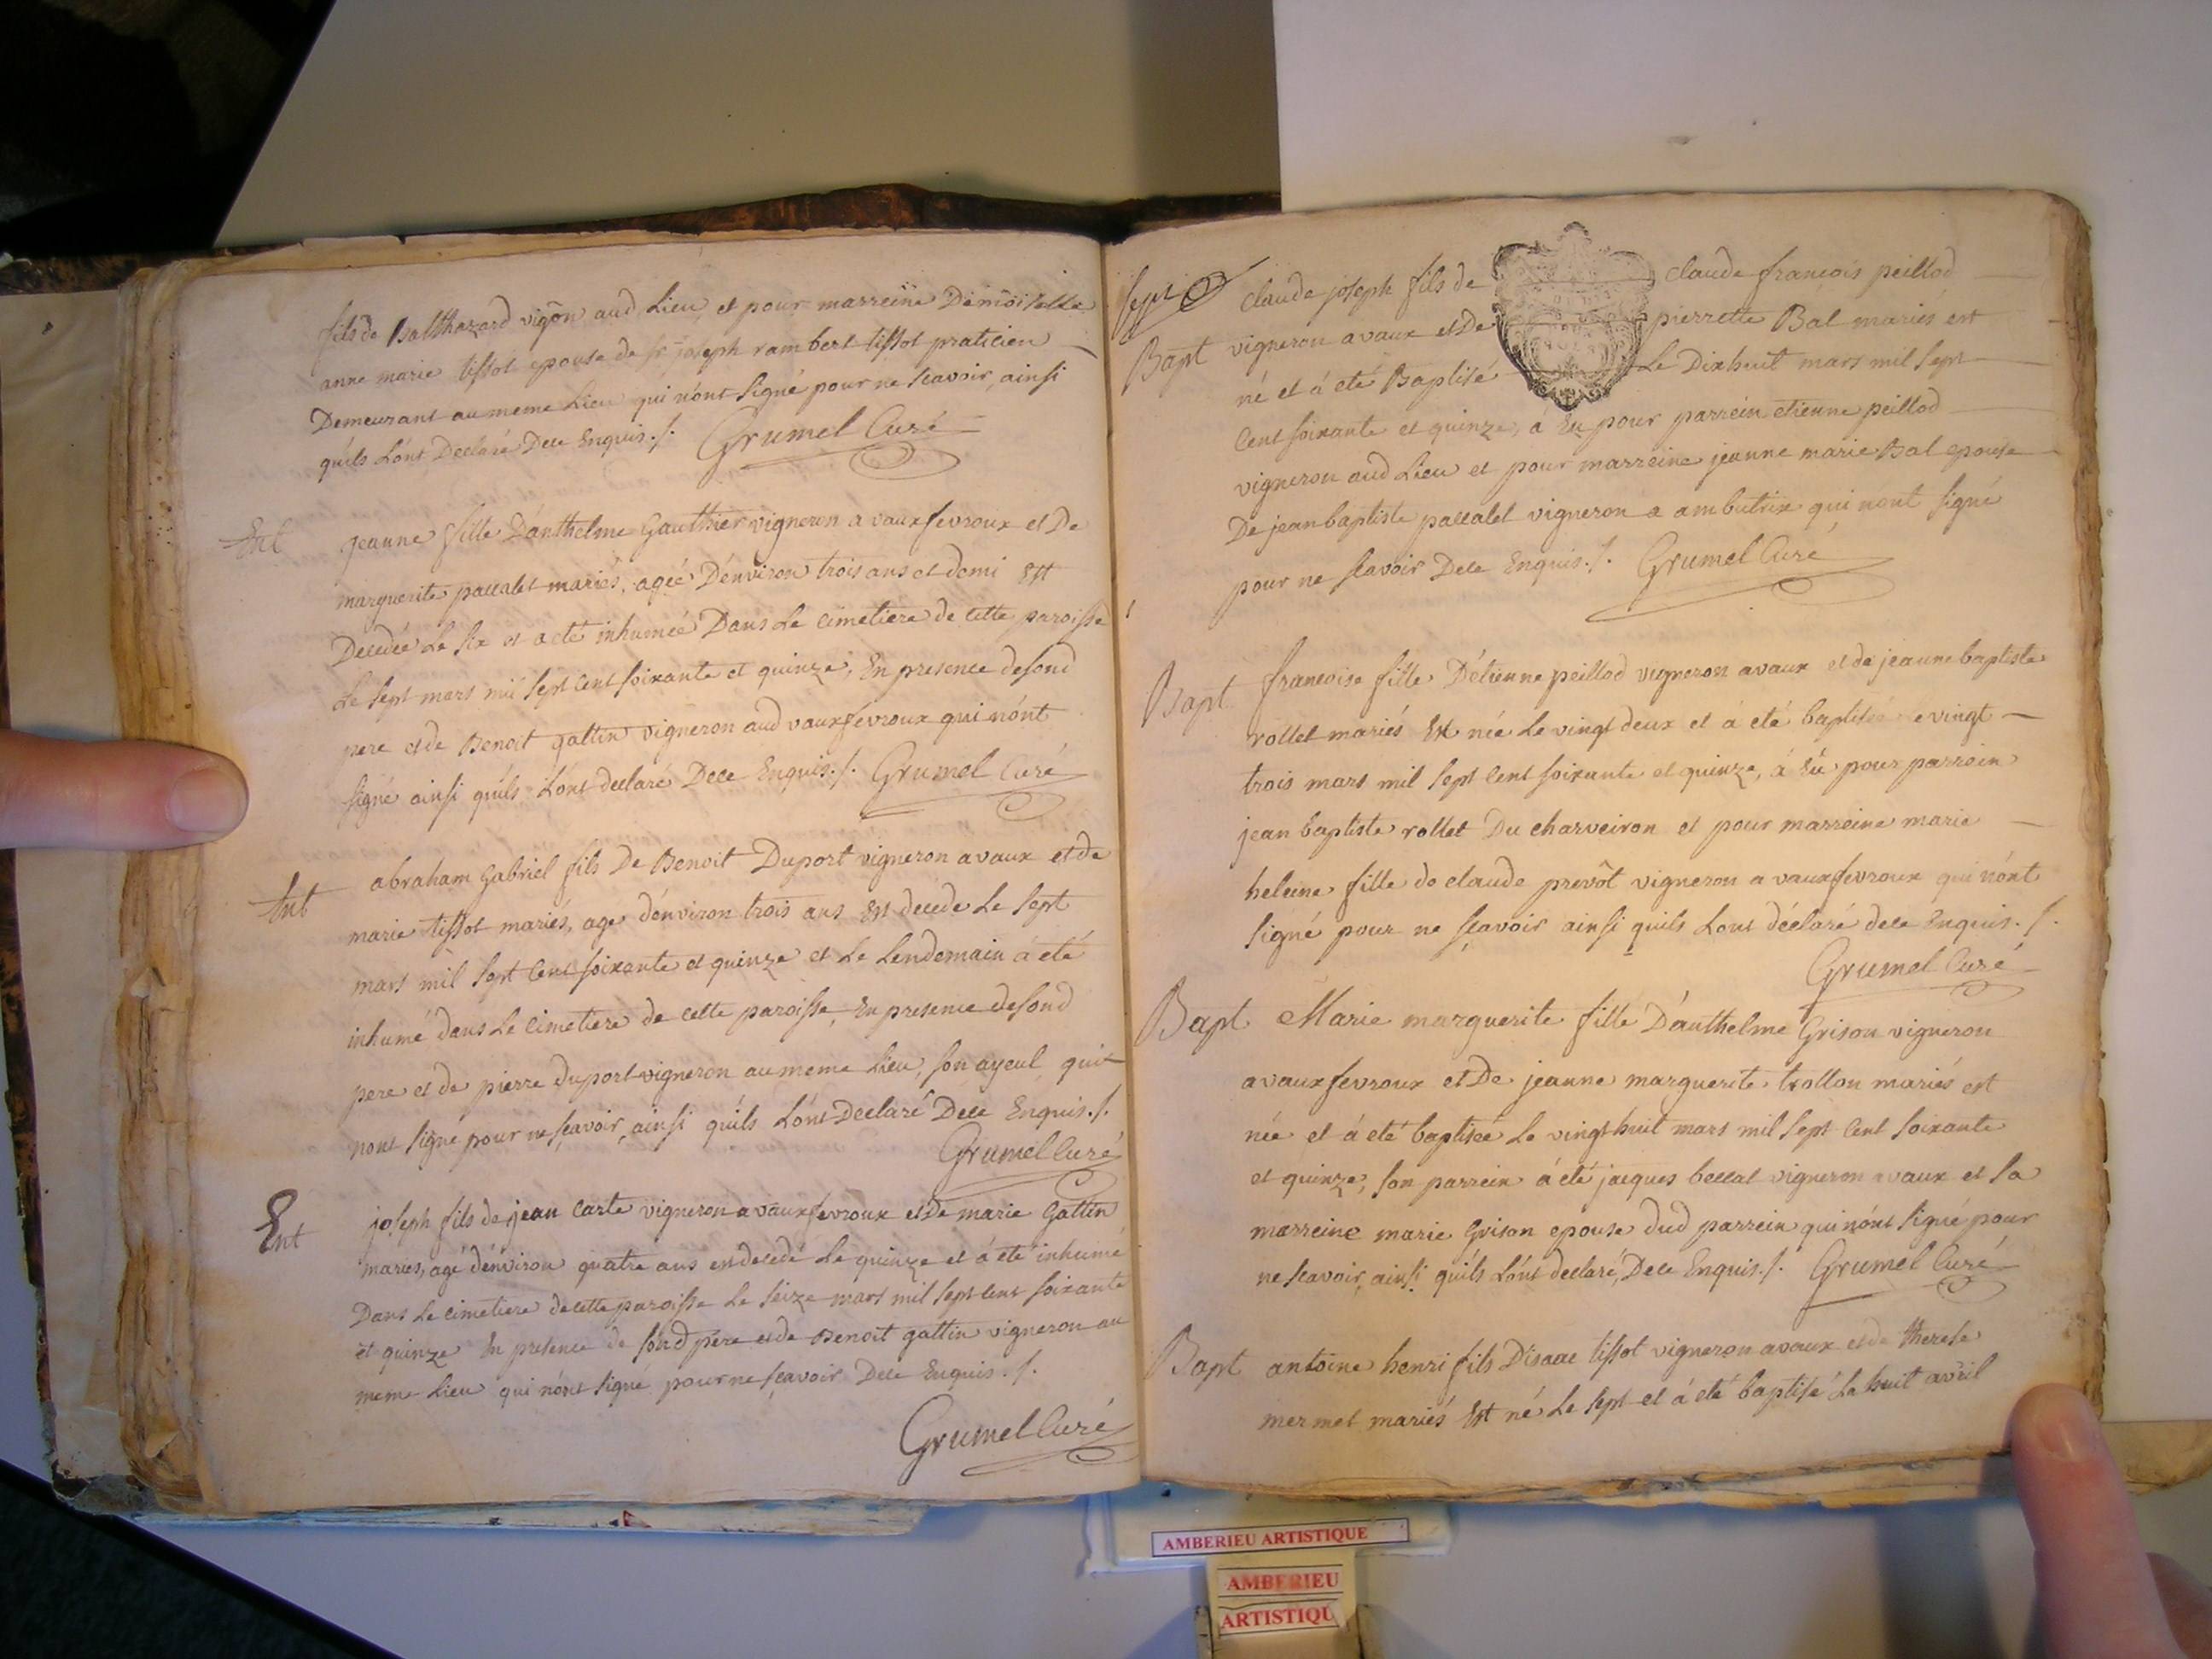 fils de Balthazard vigñon aud Lieu, et pour marreine Demoiselle
anne marie tissot epouse de sr joseph rambert tissot praticien
Demeurant au meme Lieu qui n'ont signé pour ne scavoir, ainsi
qu'ils L'ont Declaré Dece Enquis ./. Grumel Curé
Ent
jeanne fille D'anthelme Gauthier vigneron a vauxfevroux et De
marguerite paccalet mariés, ageé D'environ trois ans et demi Est
Decedée Le six et a eté inhumeé Dans Le cimetiere de cette paroisse
Le sept mars mil sept cent soixante et quinze, En presence desond
pere et de Benoit gattin vigneron aud vauxfevroux qui n'ont
signé ainsi qu'ils L'ont declaré Dece Enquis ./. Grumel Curé
Ent
abraham Gabriel fils De Benoit Duport vigneron a vaux et de
marie tissot mariés, age d'environ trois ans Est decede Le sept
mars mil sept cent soixante et quinze et Le Lendemain á eté
inhumé dans Le cimetiere de cette paroisse, En presence desond
pere et de pierre duport vigneron au meme Lieu, son ayeul qui
nont signé pour ne sçavoir, ainsi qu'ils L'ont Declaré Dece Enquis ./.
Grumel Curé
Ent
joseph fils de jean Carte vigneron a vauxfevroux et De marie Gattin
mariés, agé d'environ quatre ans est decedé Le quinze et á eté inhumé
Dans Le cimetiere de cette paroisse Le seize mars mil sept cent soixante
et quinze En presence de sond pere et de Benoit gattin vigneron au
meme Lieu qui n'ont signé pour ne sçavoir Dece Enquis ./.
Grumel Curé
sept
Bapt
claude joseph fils de claude francois peillod
vigneron a vaux et De pierrette Bal mariés est
né et á eté Baptisé Le Dixhuit mars mil sept
Cent soixante et quinze, á Eu pour parrein etienne peillod
vigneron aud Lieu et pour marreine jeanne marie Bal epouse
De jean baptiste paccalet vigneron a ambutrix qui nont signé
pour ne scavoir Dece Enquis ./. Grumel Curé
Bapt
francoise fille D'etienne peillod vigneron a vaux et de jeanne baptiste
rollet mariés Est née Le vingt deux et á eté baptisée e vingt
trois mars mil sept cent soixante et quinze, á Eu pour parrein
jean baptiste rollet Du charveiron et pour marreine marie
heleine fille de claude prevôt vigneron a vauxfevroux qui n'ont
signé pour ne sçavoir ainsi quils Lont déclaré dece Enquis ./.
Grumel Curé
Bapt
Marie marguerite fille D'anthelme Grison vigneron
a vauxfevroux et De jeanne marguerite trollon mariés est
née et á eté baptiseé Le vingt huit mars mil sept Cent soixante
et quinze, son parrein á eté jacques beccat vigneron a vaux et sa
marreine marie Grison epouse dud parrein qui n'ont signé pour
ne scavoir, ainsi qu'ils L'ont declaré, Dece Enquis ./. Grumel Curé
Bapt
antoine henri fils D'isaac tissot vigneron a vaux et de therese
mermet mariés Est né Le sept et á eté baptisé Le huit avril
AMBERIEU ARTISTIQUE
AMBERIEU
ARTISTIQU